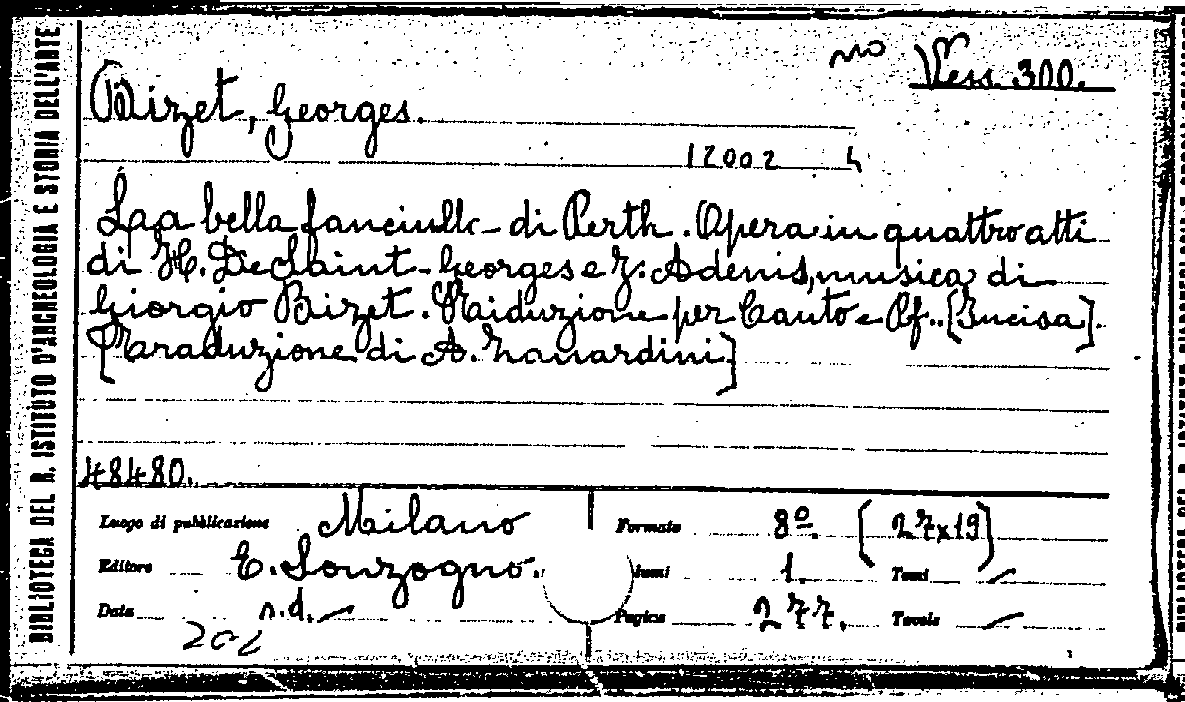 BIBLIOTECA DEL R. ISTITUTO D'ARCHEOLOGIA E STORIA DELL'ARTE
mo Vess. 300.
Bizet, Georges.
12002 4
Laa bella fanciulla di Perth. Opera in quattro atti
di H. De Saint-Georges e J. Adenis, musica di
Giorgio Bizet. Riduzione per Canto e Pf.. [Incisa].
[Traduzione di A. Zanardini]
48480.
Luogo di pubblicazione Milano
Formato 8º. [27x19]
Editore E. Sonzogno.
lumi 1. Tomi /
Data n.d.
Pagine 277. Tavole /
202